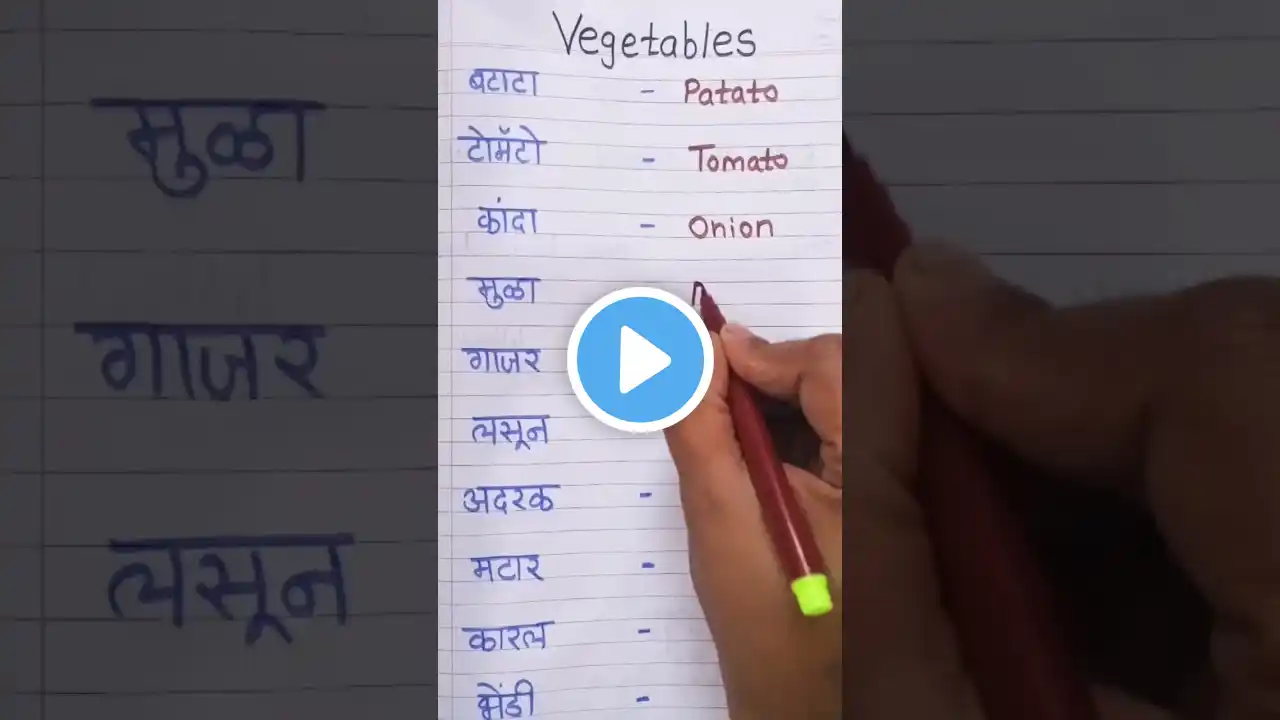 Vegetables
बटाटा - Patato
टोमॅटो - Tomato
कांदा - Onion
मुळा
गाजर
लसून
अदरक -
मटार -
कारल -
भेंडी -
मुळा
गाजर
लसून